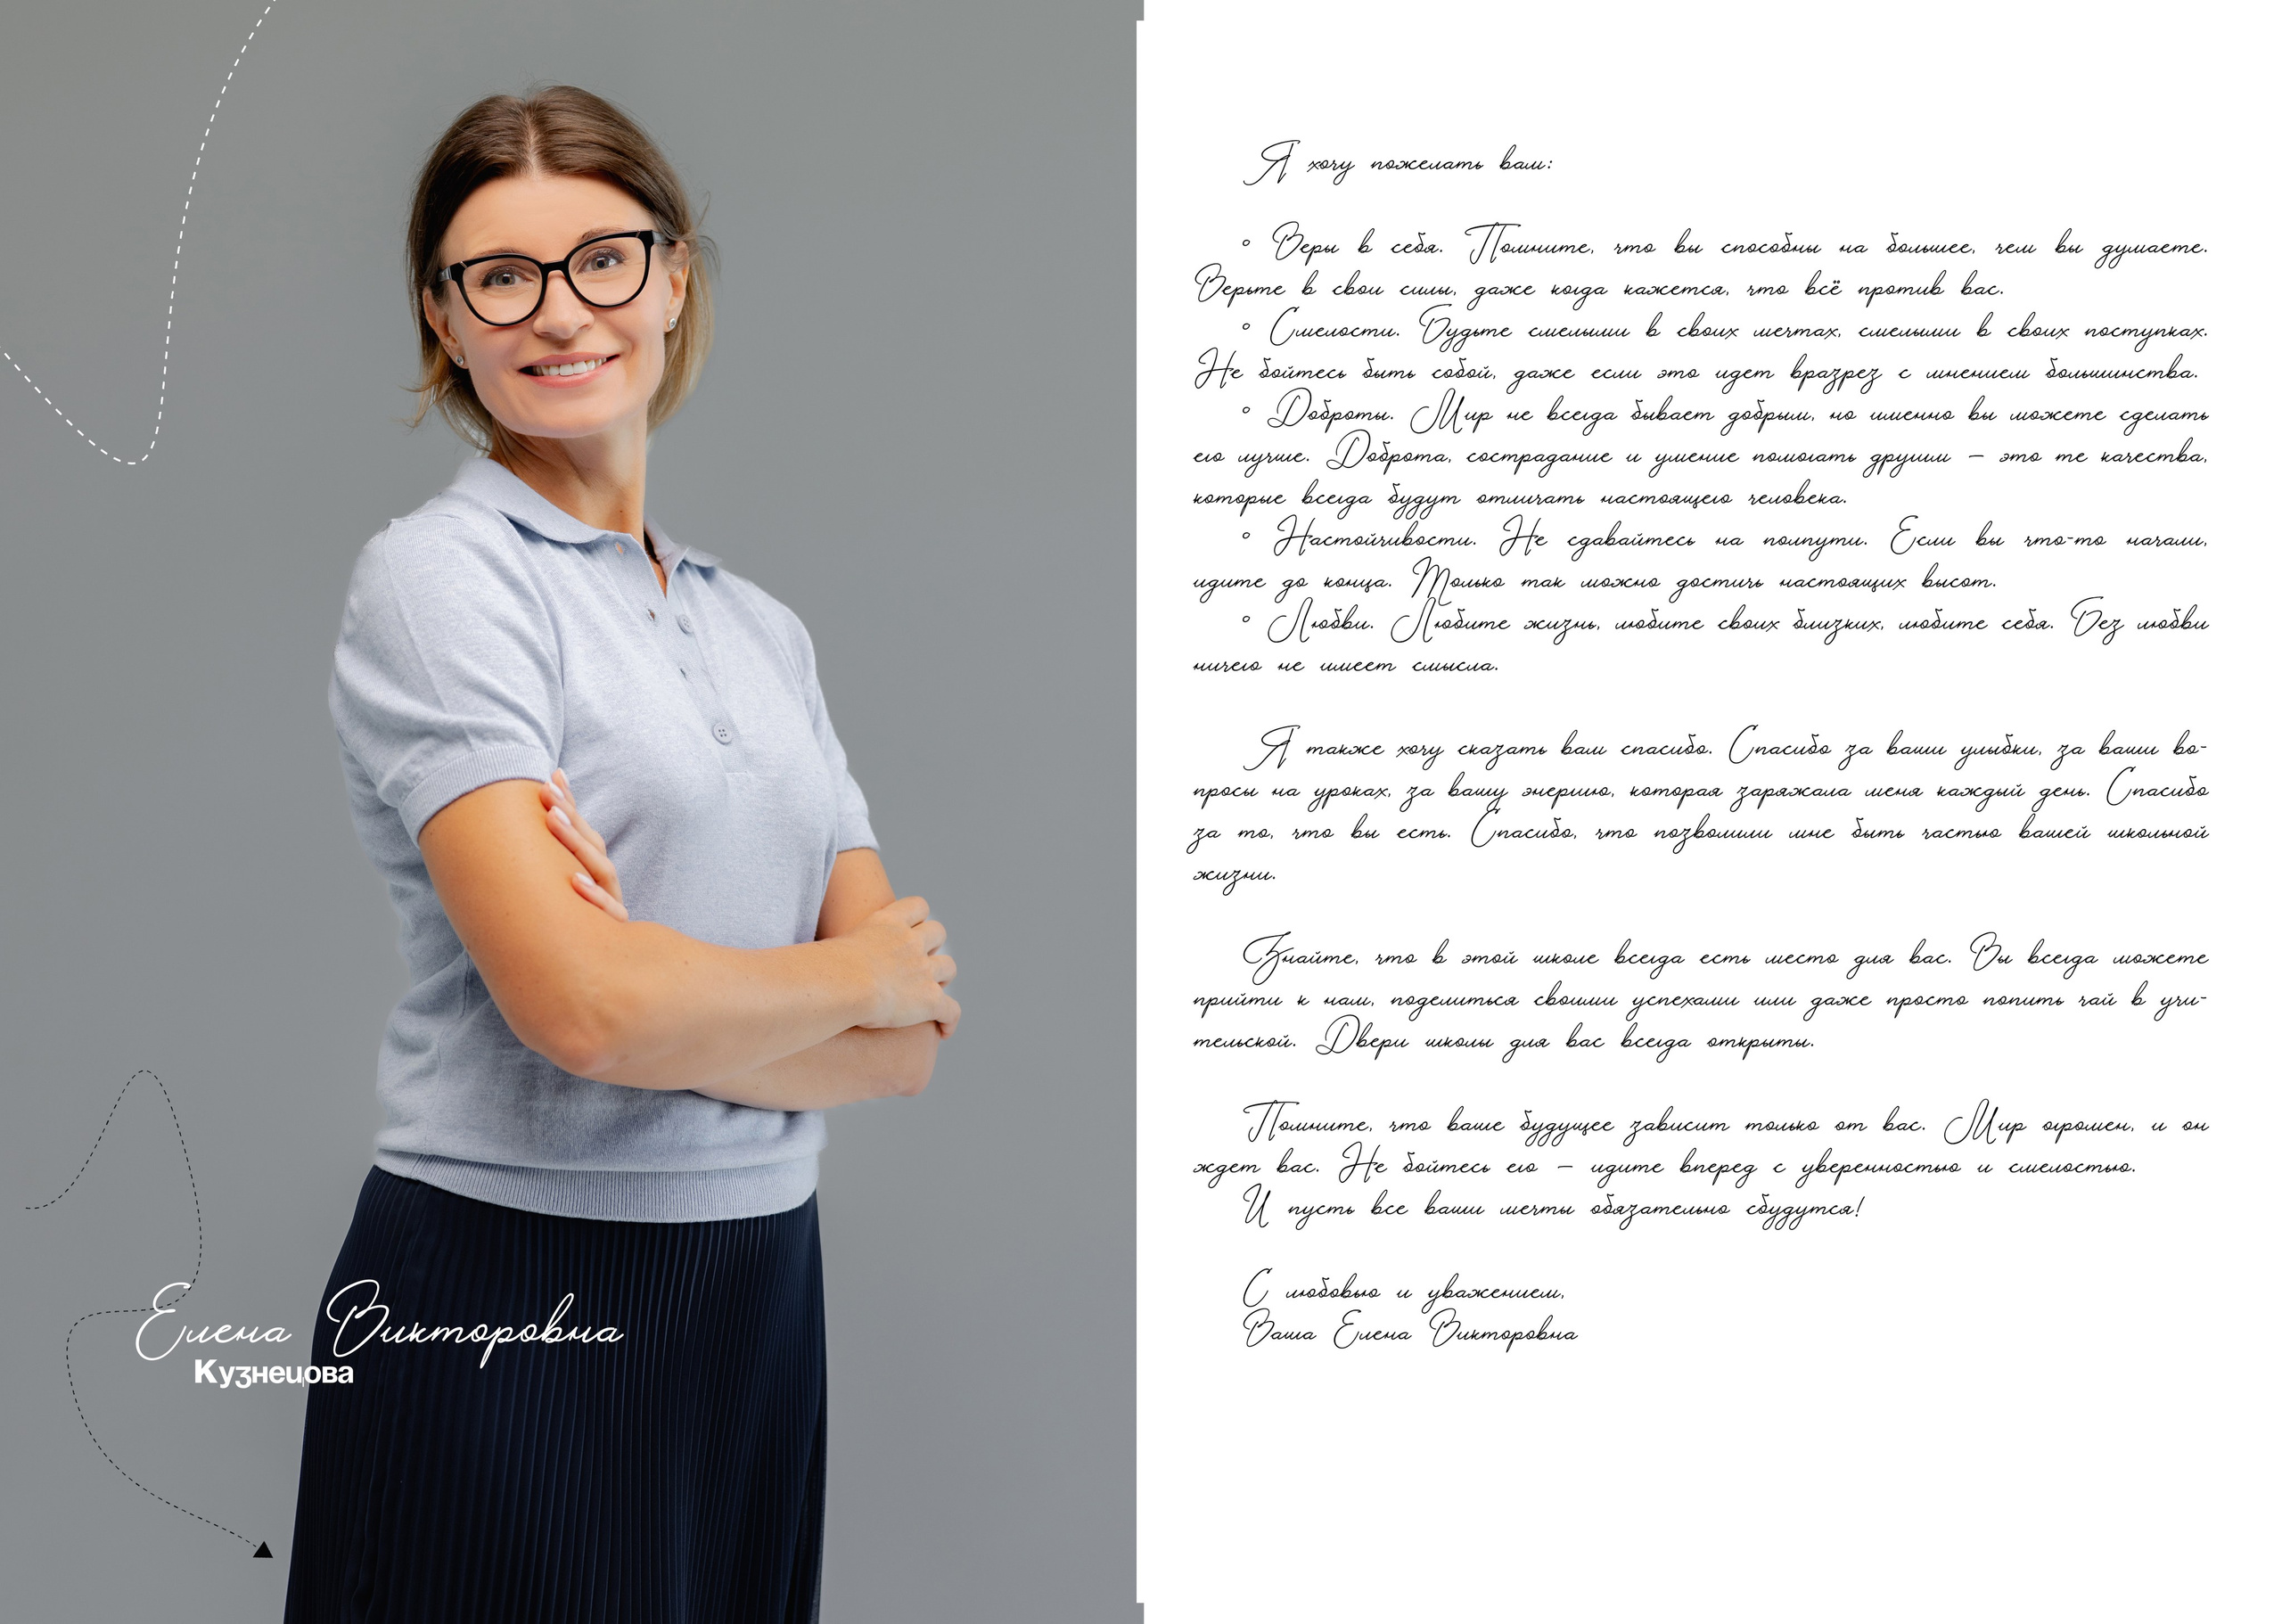 Елена Викторовна
Кузнецова
Я хочу пожелать вам:
° Веры в себя. Помните, что вы способны на большее, чем вы думаете.
Верьте в свои силы, даже когда кажется, что всё против вас.
° Смелости. Будьте смелыми в своих мечтах, смелыми в своих поступках.
Не бойтесь быть собой, даже если это идет вразрез с мнением большинства.
° Доброты. Мир не всегда бывает добрым, но именно вы можете сделать
его лучше. Доброта, сострадание и умение помогать другим – это те качества,
которые всегда будут отличать настоящего человека.
° Настойчивости. Не сдавайтесь на полпути. Если вы что-то начали,
идите до конца. Только так можно достичь настоящих высот.
° Любви. Любите жизнь, любите своих близких, любите себя. Без любви
ничего не имеет смысла.
Я также хочу сказать вам спасибо. Спасибо за ваши улыбки, за ваши во-
просы на уроках, за вашу энергию, которая заряжала меня каждый день. Спасибо
за то, что вы есть. Спасибо, что позволили мне быть частью вашей школьной
жизни.
Знайте, что в этой школе всегда есть место для вас. Вы всегда можете
прийти к нам, поделиться своими успехами или даже просто попить чай в учи-
тельской. Двери школы для вас всегда открыты.
Помните, что ваше будущее зависит только от вас. Мир огромен, и он
ждет вас. Не бойтесь его – идите вперед с уверенностью и смелостью.
И пусть все ваши мечты обязательно сбудутся!
С любовью и уважением,
Ваша Елена Викторовна